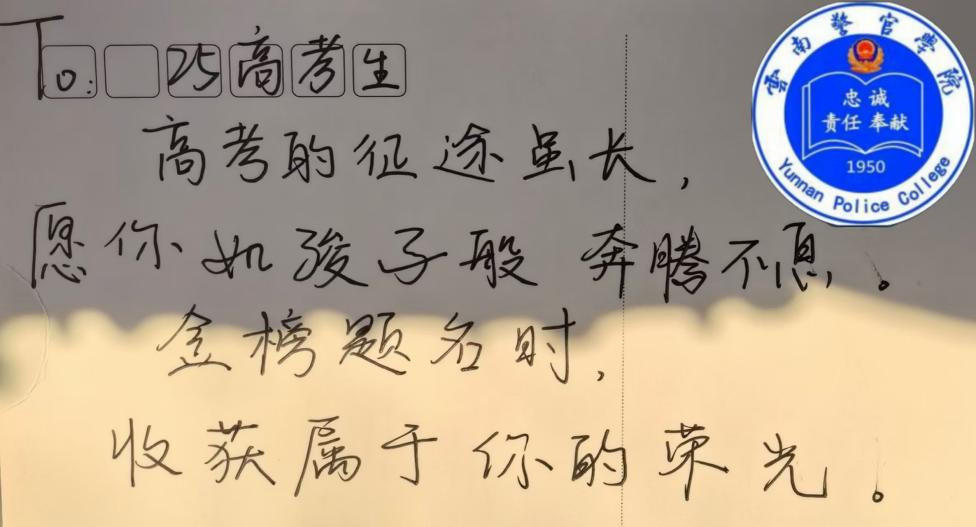 To: 25高考生
高考的征途虽长,
愿你如骏子般 奔腾不息。
金榜题名时,
收获属于你的荣光。
云南警官学院
忠诚
责任 奉献
1950
Yunnan Police College